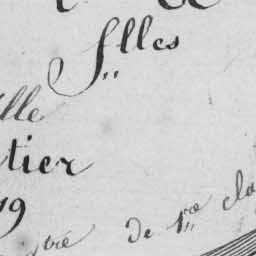 Slles
lle
tier
19
de 1re cla